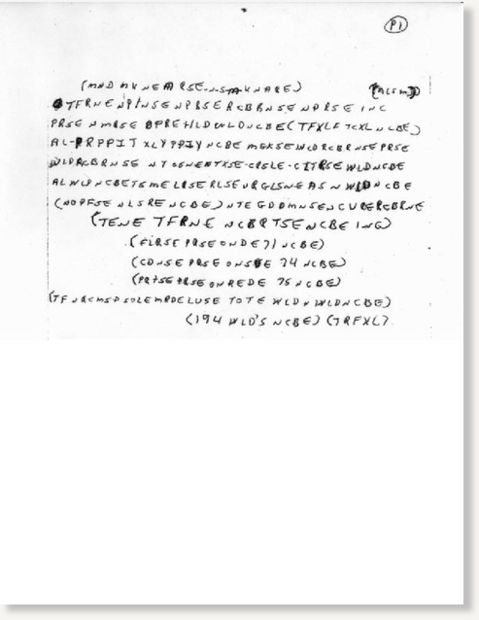 P1
(MND MKNEARSE-N-S-M-KNARE) (ALSM)
TFRNENPINSENPRSERCBRNSENPRSE INC
PRSE NMRSE OPREHLDWLDNCBE(TFXLF TCXL NCBE)
AL-PRPPIT XLYPPIY NCBE MGKSEWCDRCBRNSE PRSE
WLDRCBRNSE NTSSNENTXSE-CRSLE-CITRSE WLDNCBE
ALWLPNCBETSMELRSE RLSEURGLSNEASN WLDNCBE
(NOPFSE NLSRE NCBE) NTEGDDMNSENCURERCBRNE
(TENE TFRNE NCBRTSENCBE ING)
(FLRSE PRSEONDE 71 NCBE)
(CDNSE PRSE ONSDE 74 NCBE)
(PRTSE PRSEONREDE 75 NCBE)
(TFNRCMSPSOLEMRDELUSE TOTE WLDN WLDNCBE)
(194 WLD'S NCBE) (TRFXL)